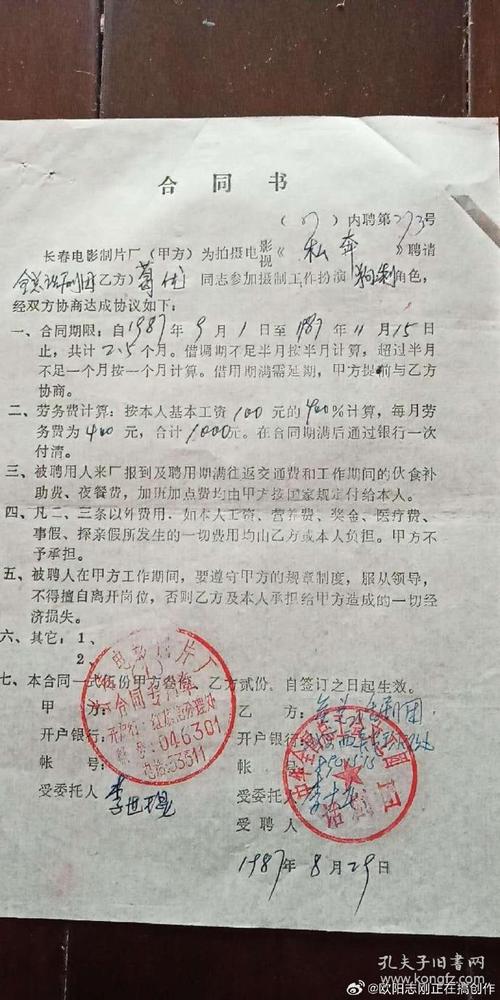 合同书
(87)内聘第273号
长春电影制片厂(甲方)为拍摄电影视《私奔》聘请
全总话剧团乙方)葛优同志参加摄制工作扮演狗剩角色,
经双方协商达成协议如下:
一、合同期限:自1987年9月1日至1987年11月15日
止,共计2.5个月。借调期不足半月按半月计算,超过半月
不足一个月按一个月计算。借用期满需延期,甲方提前与乙方
协商。
二、劳务费计算:按本人基本工资100元的400%计算,每月劳
务费为400元,合计1000元。在合同期满后通过银行一次
付清。
三、被聘用人来厂报到及聘用期满往返交通费和工作期间的伙食补
助费、夜餐费,加班加点费均由甲方按国家规定付给本人。
四、凡二、三条以外费用,如本人工资、营养费、奖金、医疗费、
事假、探亲假所发生的一切费用均由乙方或本人负担。甲方不
予承担。
五、被聘人在甲方工作期间,要遵守甲方的规章制度,服从领导,
不得擅自离开岗位,否则乙方及本人承担给甲方造成的一切经
济损失。
六、其它:1、
2、
七、本合同一式伍份甲方叁份,乙方贰份,自签订之日起生效。
甲方: 乙方:全总话剧团
开户银行: 开户银行:
帐号: 帐号:
受委托人 受委托人
受聘人
电影制片厂
合同专用章
开户行:红旗街办理处
帐号:046301
电话:53311
话剧团
1987年8月29日
孔夫子旧书网
@欧阳志刚正在搞创作